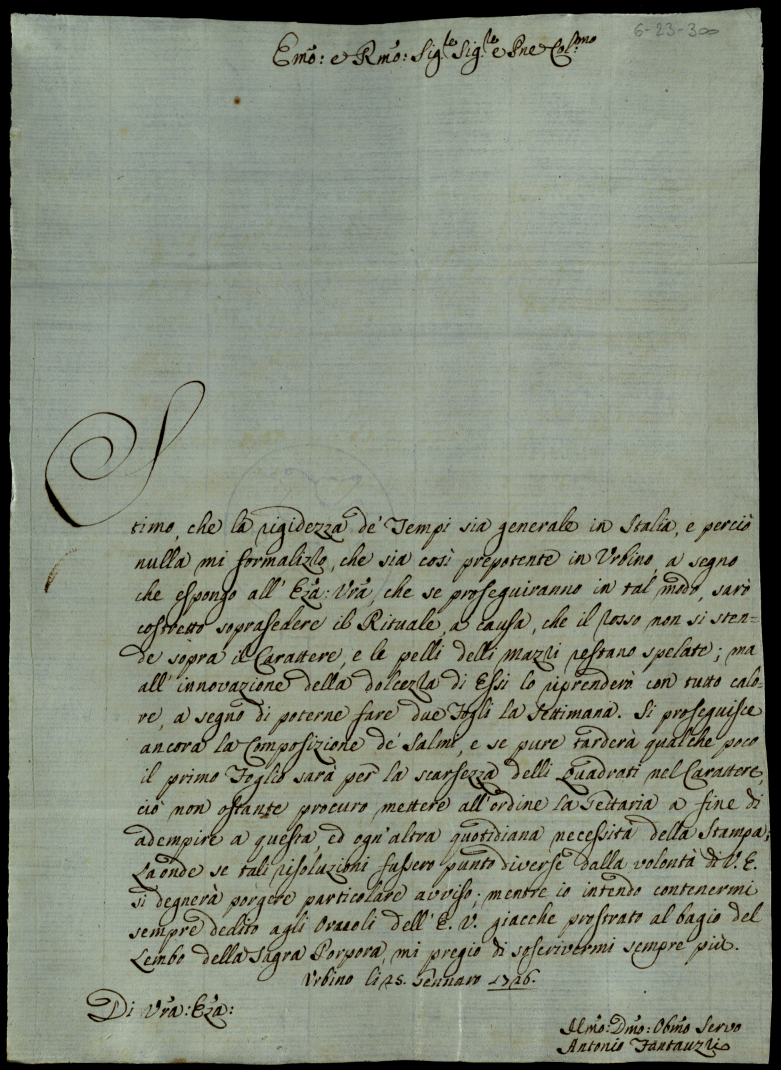 6-23-300
Emo: e Rmo: Sig.re Sig.re e Pne Col.mo
Stimo, che la rigidezza de' Tempi sia generale in Italia, e perciò
nulla mi formalizzo, che sia così prepotente in Urbino, a segno
che espongo all' Eza: Vra, che se proseguiranno in tal modo, sarò
costretto soprasedere il Rituale, a causa, che il rosso non si sten=
de sopra il Carattere, e le pelli delli mazzi restano spelate; ma
all' innovazione della dolcezza di Essi lo riprenderò con tutto calo=
re, a segno di poterne fare due Fogli la Settimana. Si proseguisce
ancora la Composizione de' Salmi, e se pure tarderà qualche poco
il primo Foglio sarà per la scarsezza delli Quadrati nel Carattere,
ciò non ostante procuro mettere all' ordine la Gettaria a fine di
adempire a questa, ed ogn' altra quotidiana necessità della Stampa;
Laonde se tali risoluzioni fussero punto diverse dalla volontà di V. E.
si degnerà porgere particolare avviso; mentre io intendo contenermi
sempre dedito agli Oracoli dell' E. V. giacche prostrato al bagio del
Lembo della Sagra Porpora, mi pregio di soscrivermi sempre più.
Urbino li 25. Gennaro 1726.
Di Vra: Eza:
Umo: Dmo: Obmo Servo
Antonio Fantauzzi